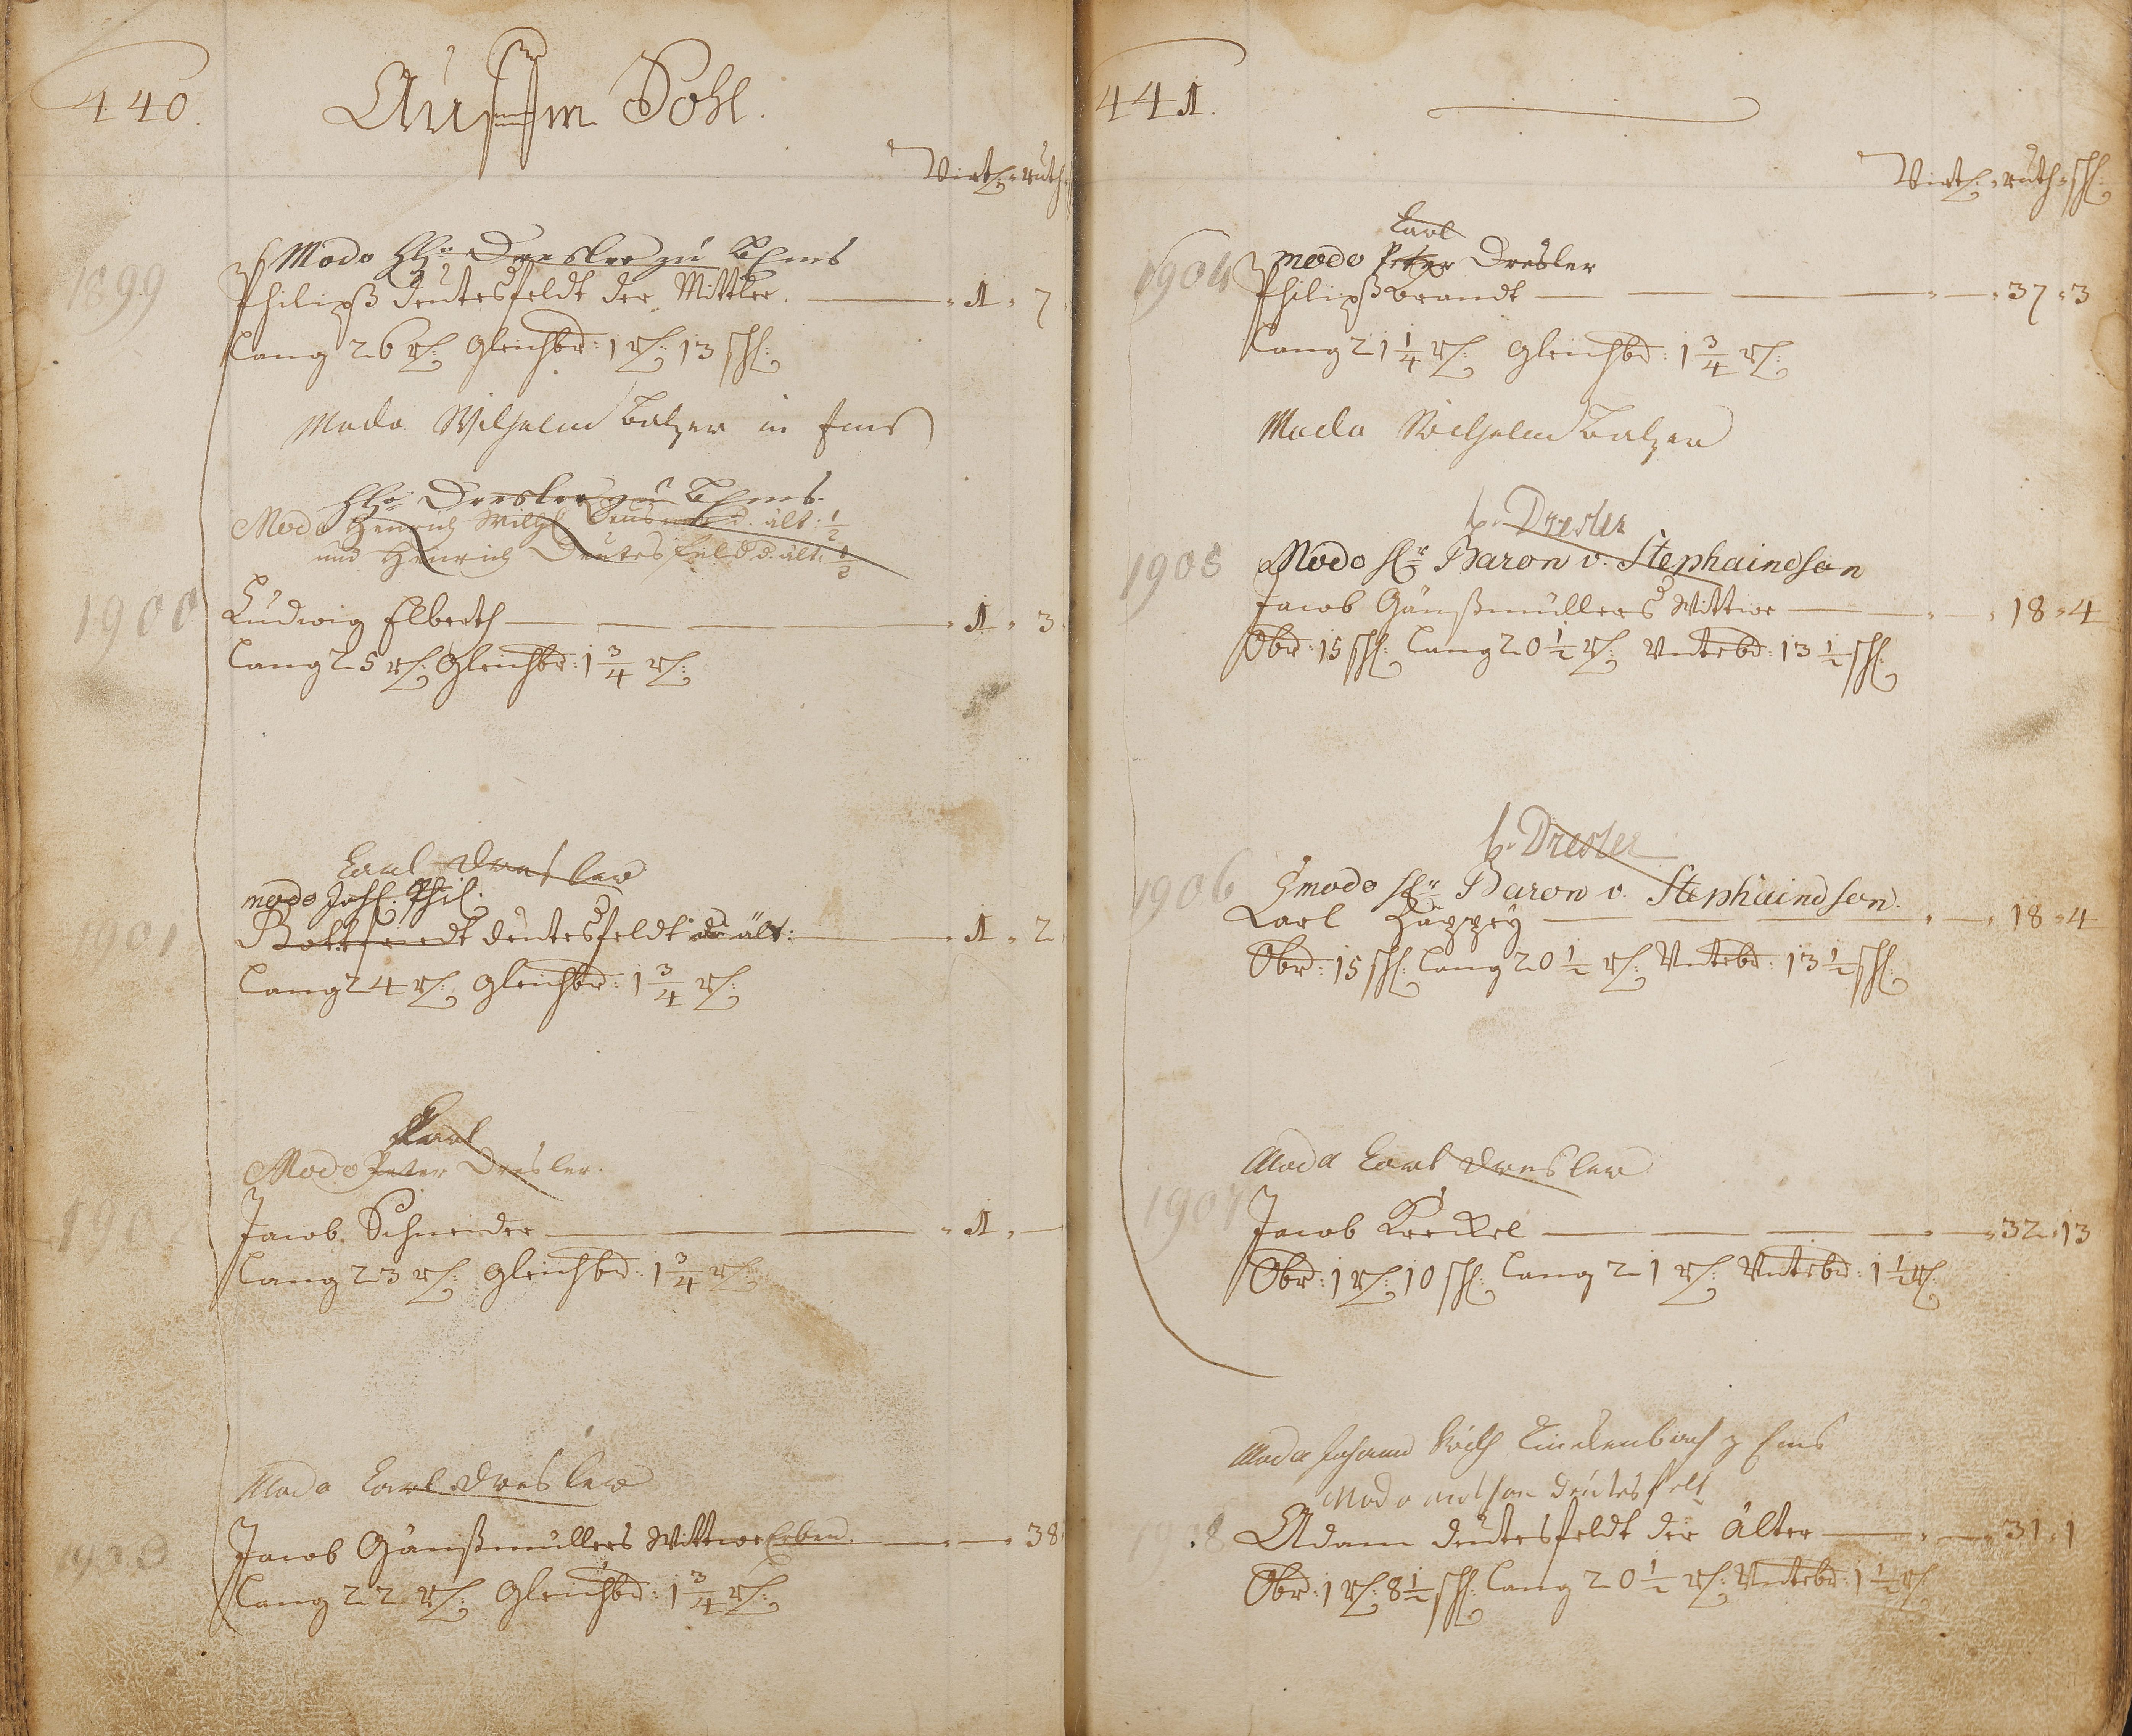 440.
Auf m Pohl.
Virtl: ruth
1899
Modo H: Dresler zu Ems
Philipß deutesfeldt der Mittler. — 1 " 7
Lang 26 rh: Gleichbr: 1 rh: 13 sch:
Modo Wilhelm Balzer in Ems
H: Dresler zu Ems.
Modo Henrich Wilh: d. ält: 1/2
und Henrich Deutesfeld d. ält: 1/2
1900
Ludwig Elberth — 1 " 3
Lang 25 rh: Gleichbr: 1 3/4 rh:
Carl Dresler
modo Joh. Phil.
1901
Gottfriedt deutesfeldt der ält: — 1 " 2
Lang 24 rh: Gleichbr: 1 3/4 rh:
Carl
Modo Peter Dresler.
1902
Jacob Schneider — 1 " —
Lang 23 rh: Gleichbr: 1 3/4 rh:
Modo Carl Dresler
1903
Jacob Gänßmüllers Wittwe Erben. — 38
Lang 22 rh: Gleichbr: 1 3/4 rh:
441.
Virtl: ruth sch:
Carl
1904
modo Peter Dresler
Philipß brandt — 37 " 3
Lang 21 1/4 rh: Gleichbr: 1 3/4 rh:
Modo Wilhelm Balzer
Dresler
1905
Modo Hr Baron v. Stephaindson
Jacob Gänßmüllers Wittwe — 18 " 4
Obr: 15 sch: Lang 20 1/2 rh: Untrbr: 13 1/2 sch:
Dresler
1906
modo Hr Baron v. Stephaindson.
Carl Happey — 18 " 4
Obr: 15 sch: Lang 20 1/2 rh: Untrbr: 13 1/2 sch:
Modo Carl Dresler
1907
Jacob Reckel — 32 " 13
Obr: 1 rh: 10 sch: Lang 21 rh: Untrbr: 1 1/2 rh:
Modo Johann Wilh Linckenbach z Ems
Modo deutesfelt
1908
Adam deutesfeldt der Älter — 31 " 1
Obr: 1 rh: 8 1/2 sch: Lang 20 1/2 rh: Untrbr: 1 1/2 rh: